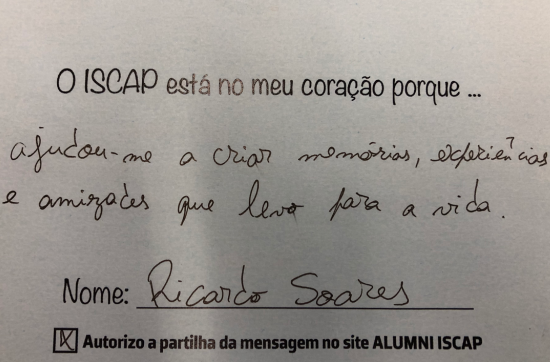 O ISCAP está no meu coração porque ...
ajudou-me a criar memórias, experiências
e amizades que levo para a vida.
Nome: Ricardo Soares
Autorizo a partilha da mensagem no site ALUMNI ISCAP